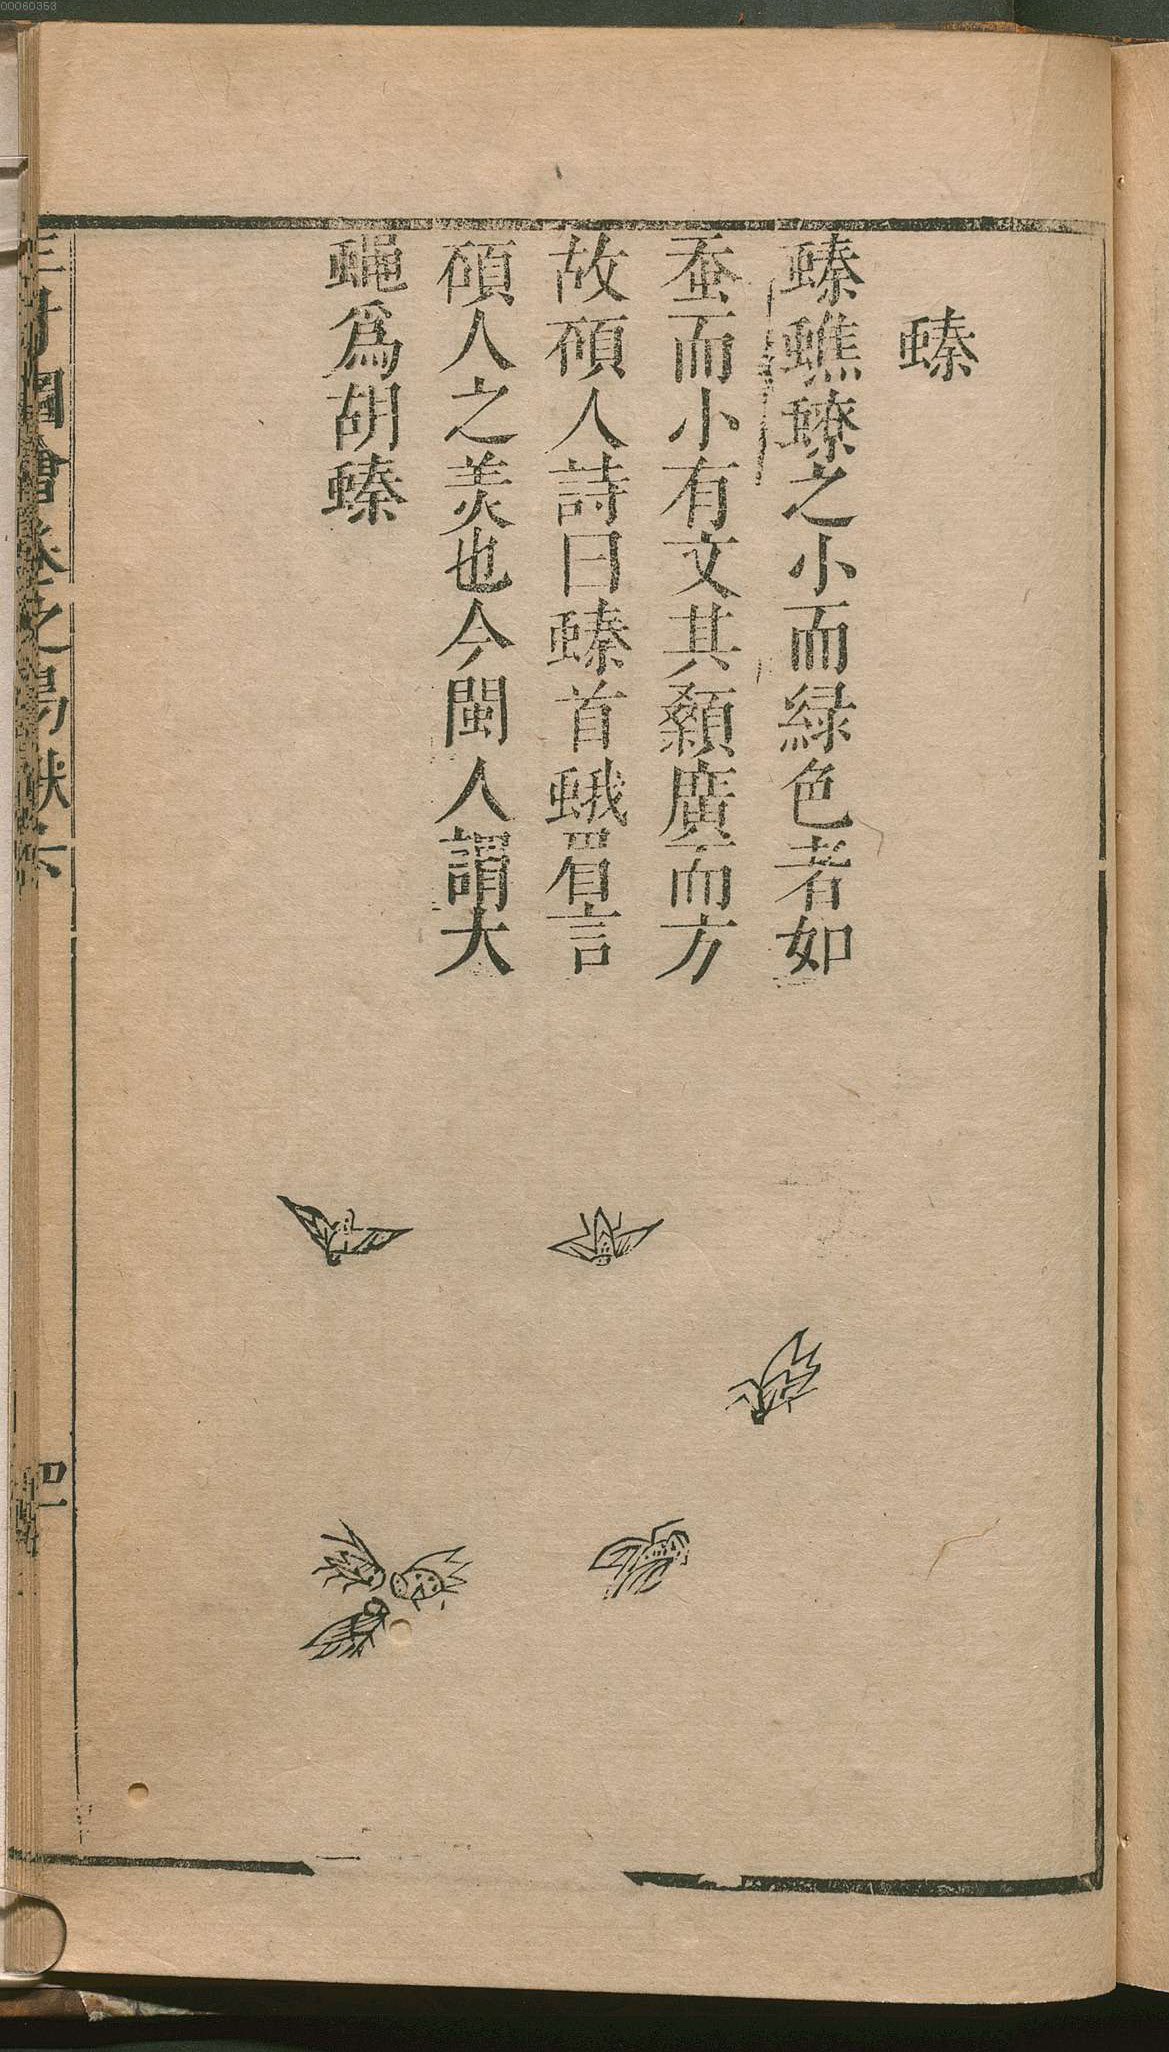 螓
螓蟭蟟之小而緑色者如
蚕而小有文其顙廣而方
故碩人詩曰螓首蛾眉言
碩人之美也今閩人謂大
蠅爲胡螓
三才圖會卷之鳥獸六
00060353